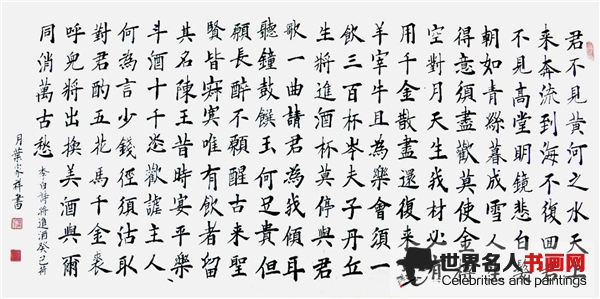 君不見黃河之水天上
來奔流到海不復回君
不見高堂明鏡悲白髮
朝如青絲暮成雪人生
得意須盡歡莫使金樽
空對月天生我材必有
用千金散盡還復來烹
羊宰牛且為樂會須一
飲三百杯岑夫子丹丘
生將進酒杯莫停與君
歌一曲請君為我傾耳
聽鐘鼓饌玉何足貴但
願長醉不願醒古來聖
賢皆寂寞唯有飲者留
其名陳王昔時宴平樂
斗酒十千恣歡謔主人
何為言少錢徑須沽取
對君酌五花馬千金裘
呼兒將出換美酒與爾
同消萬古愁
李白詩將進酒癸巳荷
月葉家祥書
世界名人书画网
Celebrities and paintings